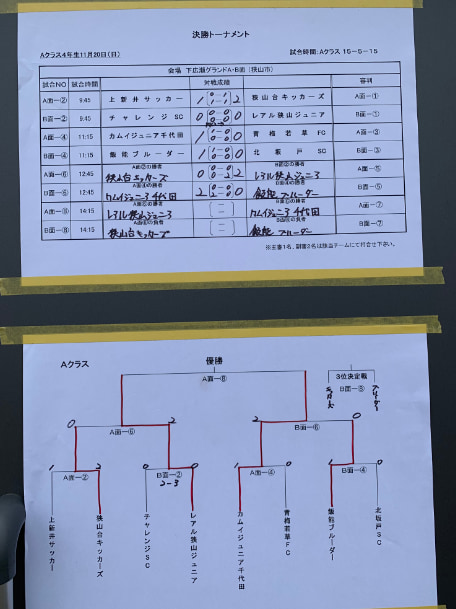 決勝トーナメント
Aクラス4年生11月20日(日)
試合時間:Aクラス 15-5-15
会場 下広瀬グランドA・B面(狭山市)
試合NO 試合時間 対戦成績 審判
A面-② 9:45 上新井サッカー 1 0-1 1-1 2 狭山台キッカーズ A面-①
B面-② 9:45 チャレンジSC 0 0-0 0-0 0 レアル狭山ジュニア B面-①
A面-④ 11:15 カムイジュニア千代田 1 0 青梅若草FC A面-③
B面-④ 11:15 飯能ブルーダー 1 0 北坂戸SC B面-③
A面②の勝者 B面②の勝者
A面-⑥ 12:45 狭山台キッカーズ 0 2 レアル狭山ジュニア A面-⑤
A面④の勝者 B面④の勝者
B面-⑥ 12:45 カムイジュニア千代田 2 0 飯能ブルーダー B面-⑤
A面⑥の勝者 B面⑥の勝者
A面-⑧ 14:15 レアル狭山ジュニア カムイジュニア千代田 A面-⑦
A面⑥の負者 B面⑥の負者
B面-⑧ 14:15 狭山台キッカーズ 飯能ブルーダー B面-⑦
※主審1名、副審2名を該当チームにて打合せ下さい。
Aクラス
優勝
A面-⑧
3位決定戦
B面-⑧
ブルーダー
0 2 2 0
A面-⑥ B面-⑥
1 2 0 0 1 0 1 0
A面-② B面-② A面-④ B面-④
2-3
上新井サッカー
狭山台キッカーズ
チャレンジSC
レアル狭山ジュニア
カムイジュニア千代田
青梅若草FC
飯能ブルーダー
北坂戸SC